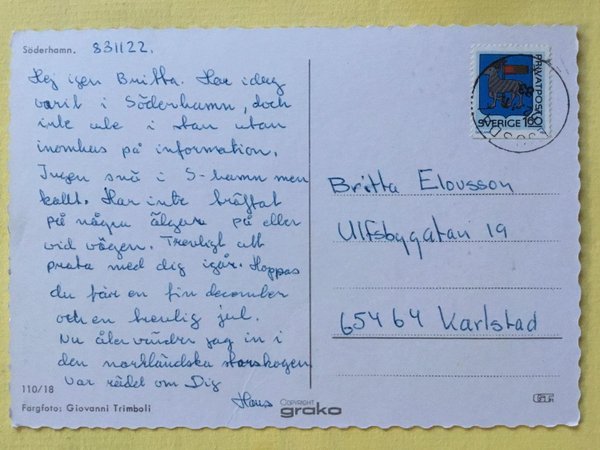 Söderhamn. 831122.
Hej igen Britta. Har idag
varit i Söderhamn, doch
inte ute i stan utan
inomhus på information.
Ingen snö i S-hamn men
kallt. Har inte träffat
på några älgar på eller
vid vägen. Trevligt att
prata med dig igår. Hoppas
du får en fin december
och en trevlig jul.
Nu återvänder jag in i
den norrländska storskogen
Var rädd om Dig
Hans
110/18
Färgfoto: Giovanni Trimboli
COPYRIGHT
grako
PRIVATPOST
SVERIGE 160
Britta Elovsson
Ulfsbygatan 19
65464 Karlstad